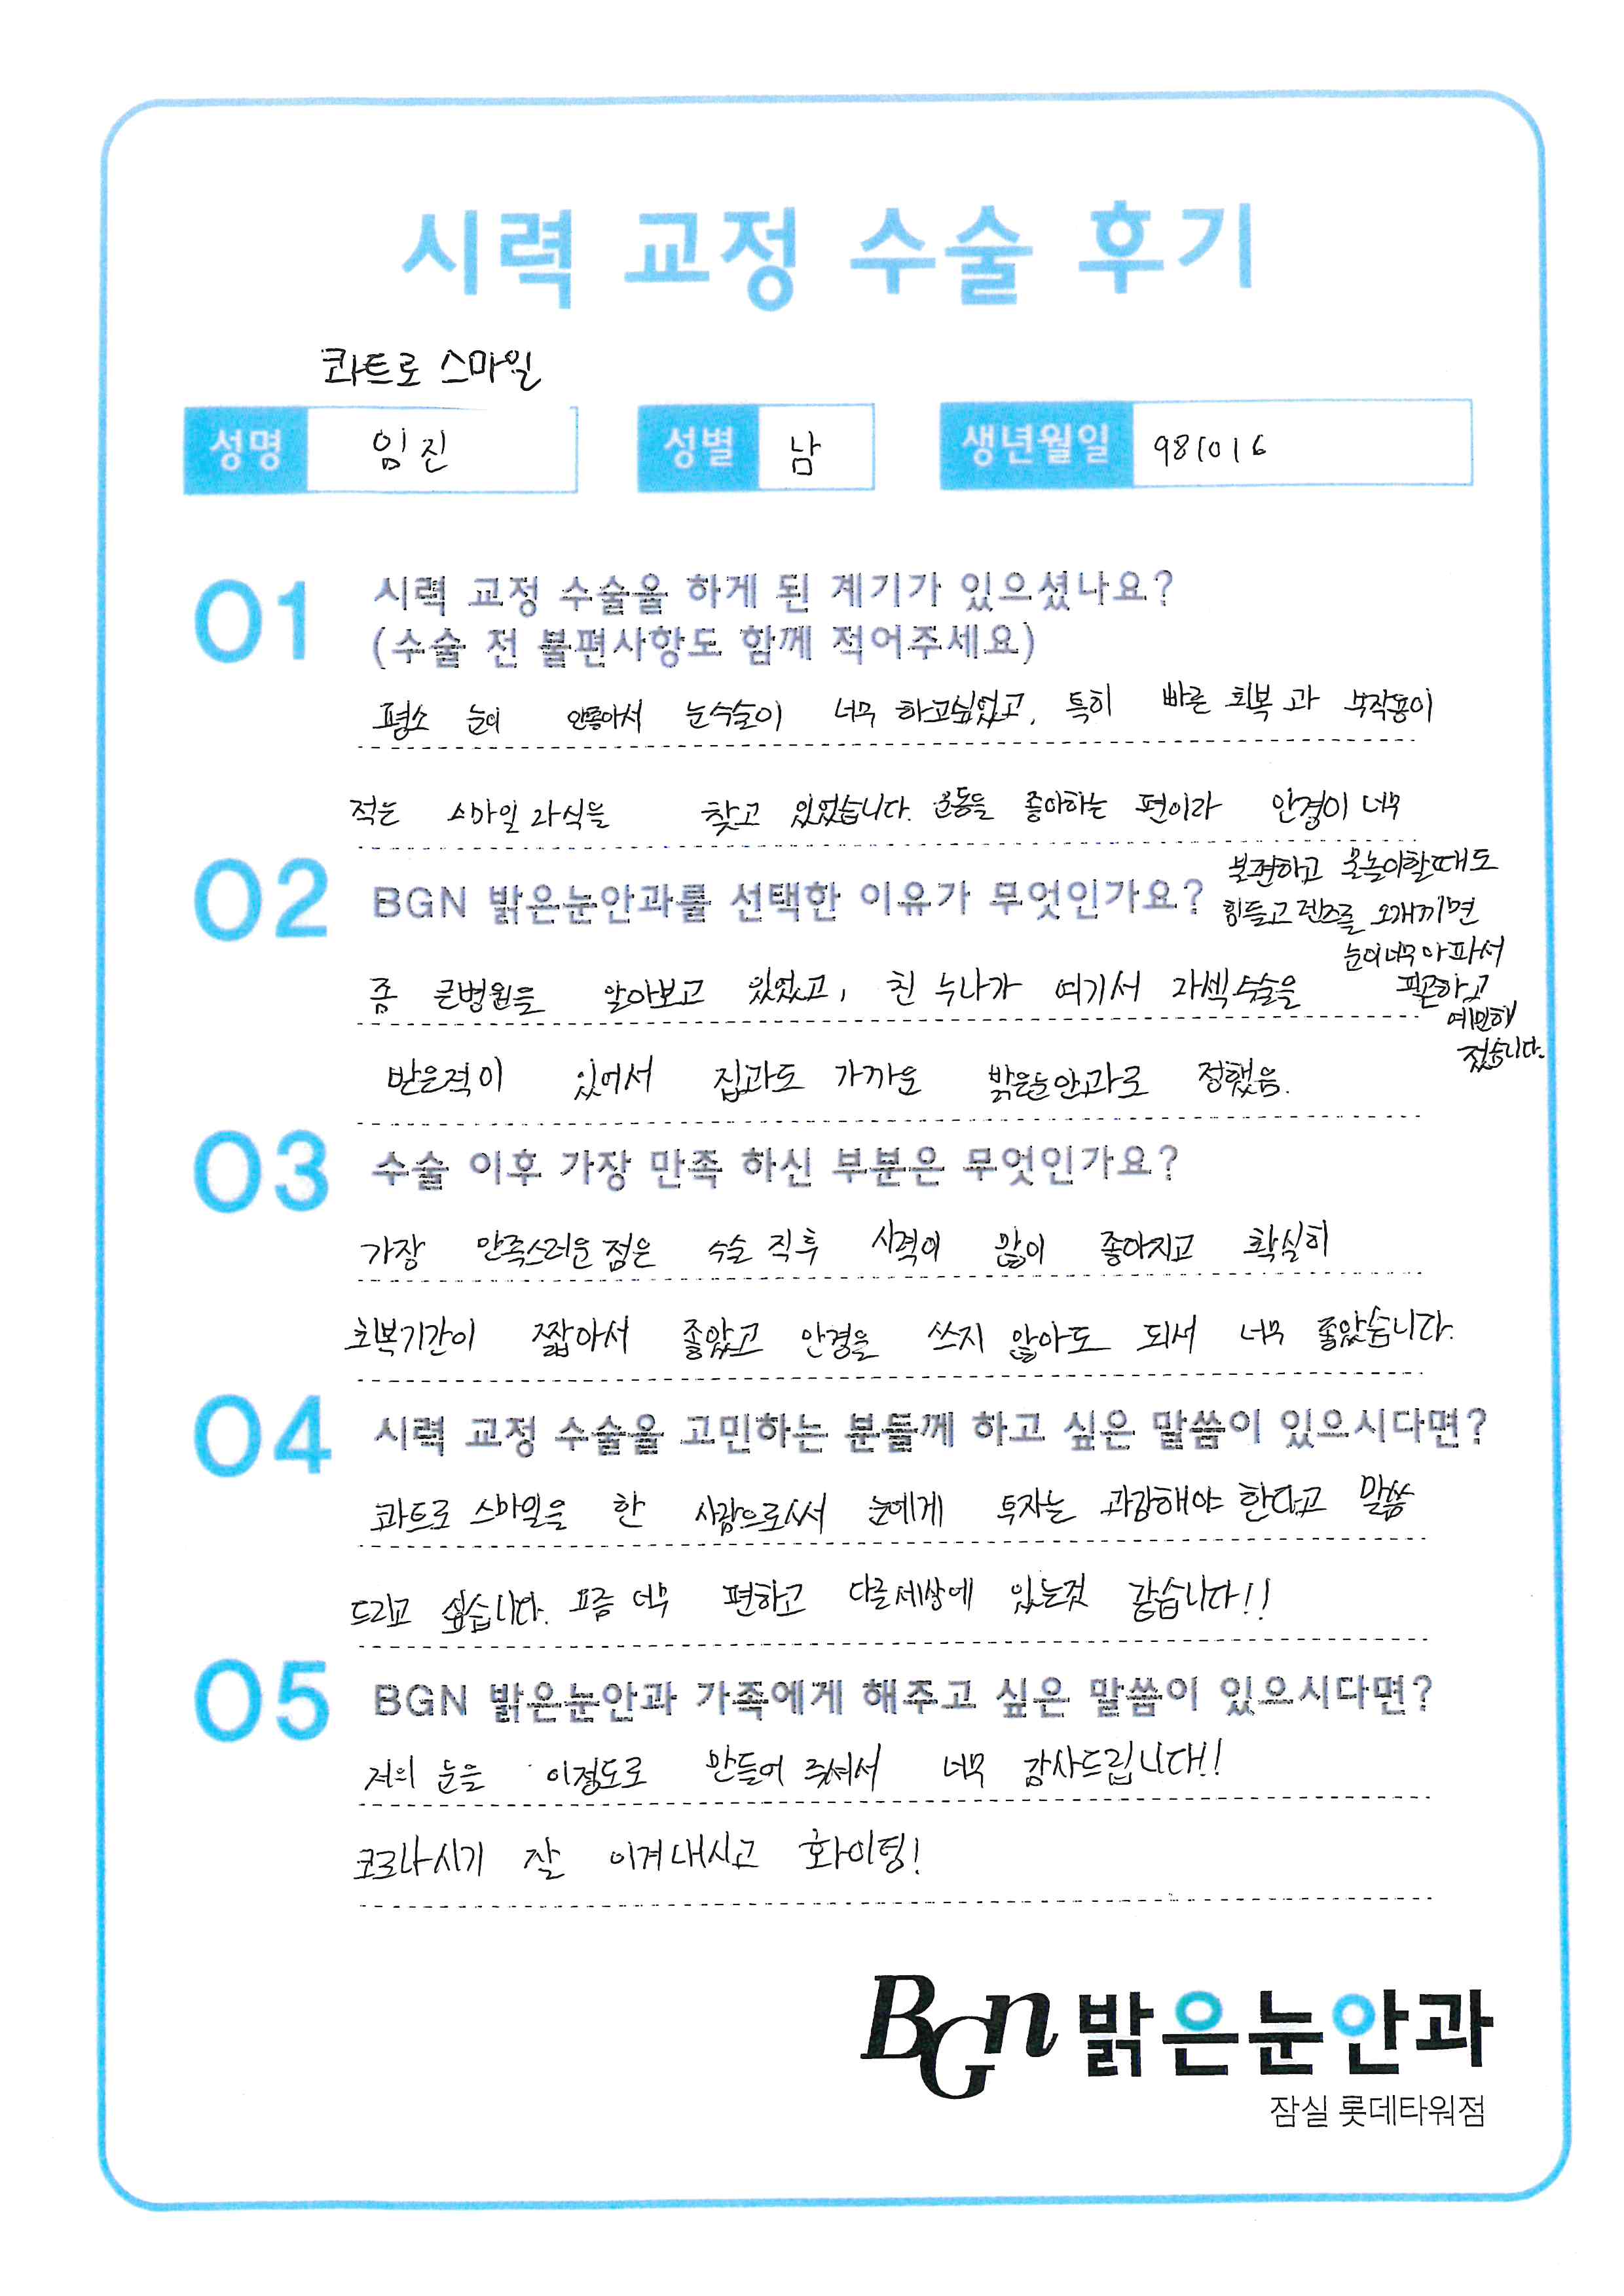 시력 교정 수술 후기
콰트로 스마일
성명 임진 성별 남 생년월일 981016
01 시력 교정 수술을 하게 된 계기가 있으셨나요?
(수술 전 불편사항도 함께 적어주세요)
평소 눈이 안좋아서 눈수술이 너무 하고싶었고, 특히 빠른 회복과 부작용이
적은 스마일라식을 찾고 있었습니다. 운동을 좋아하는 편이라 안경이 너무
불편하고 물놀이할때도
힘들고 렌즈를 오래끼면
눈이너무아파서
피곤하고
예민해
졌습니다.
02 BGN 밝은눈안과를 선택한 이유가 무엇인가요?
좀 큰병원을 알아보고 있었고, 친 누나가 여기서 라섹수술을
받은적이 있어서 집과도 가까운 밝은눈안과로 정했음.
03 수술 이후 가장 만족 하신 부분은 무엇인가요?
가장 만족스러운점은 수술 직후 시력이 많이 좋아지고 확실히
회복기간이 짧아서 좋았고 안경을 쓰지 않아도 되서 너무 좋았습니다.
04 시력 교정 수술을 고민하는 분들께 하고 싶은 말씀이 있으시다면?
콰트로 스마일을 한 사람으로서 눈에게 투자는 과감해야 한다고 말씀
드리고 싶습니다. 요즘 너무 편하고 다른세상에 있는것 같습니다!!
05 BGN 밝은눈안과 가족에게 해주고 싶은 말씀이 있으시다면?
저의 눈을 이정도로 만들어 주셔서 너무 감사드립니다!!
코로나시기 잘 이겨내시고 화이팅!
BGN 밝은눈안과
잠실 롯데타워점